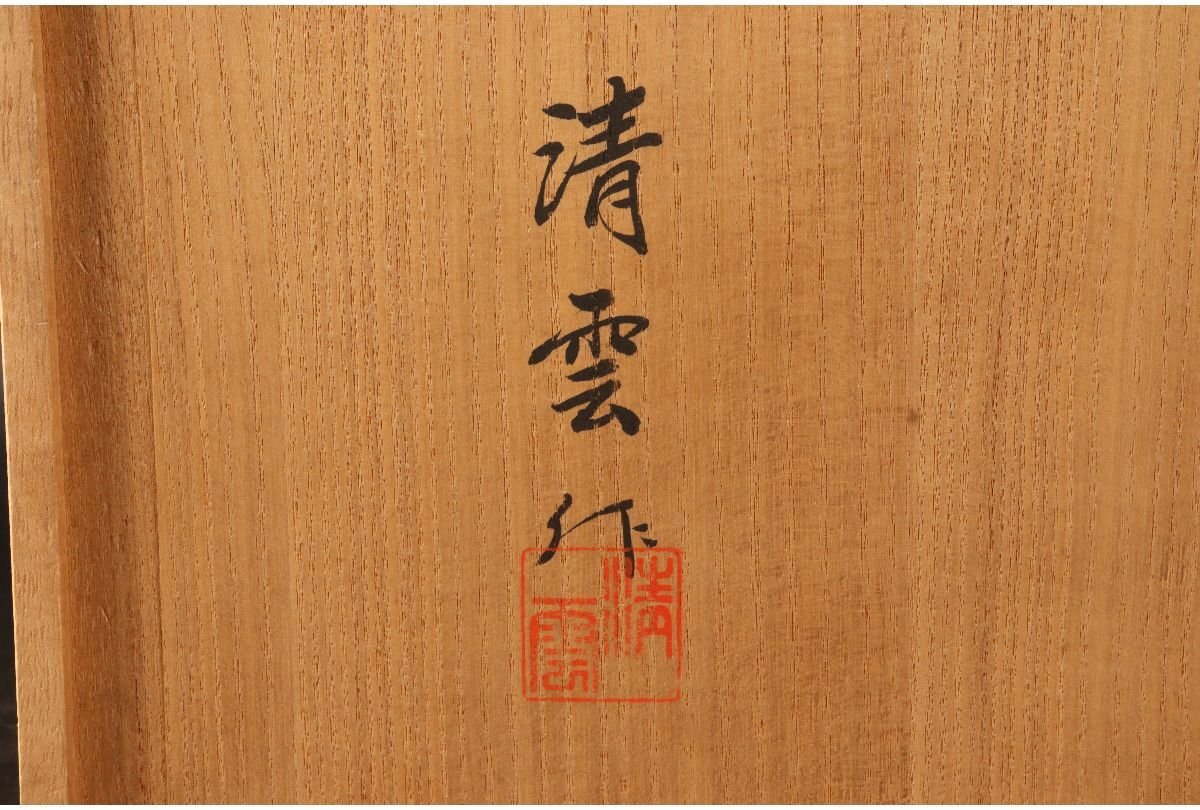 清雲作
清雲